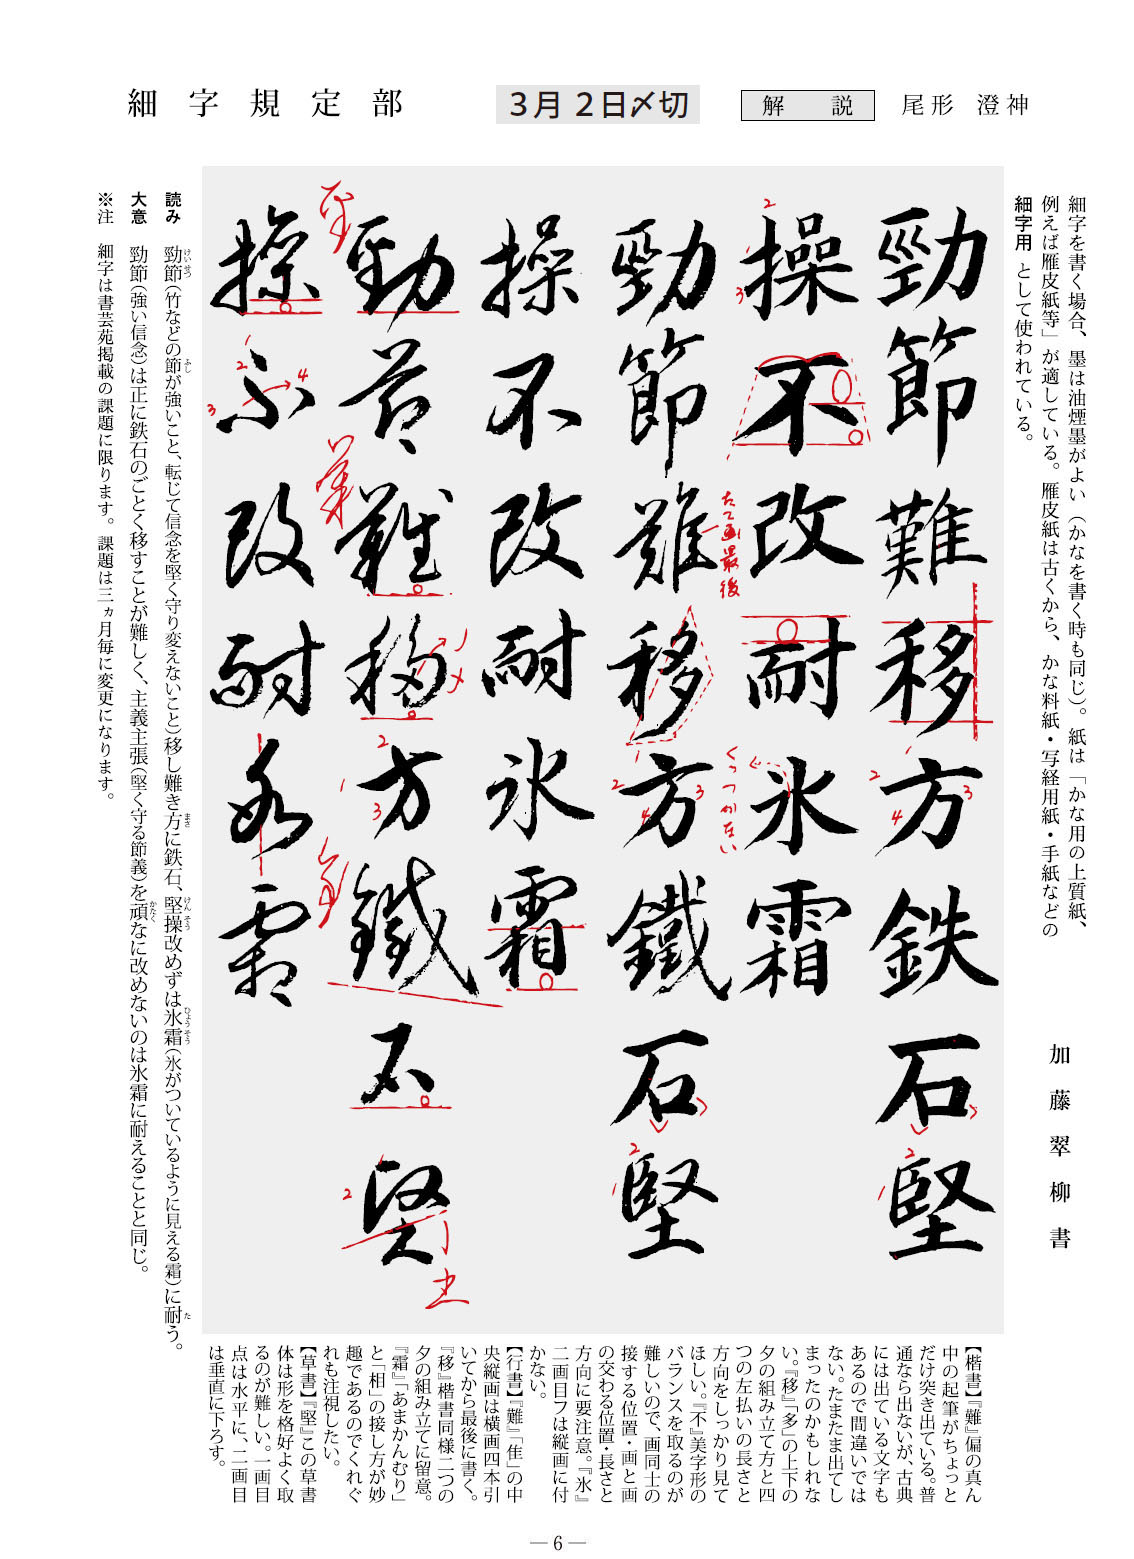 細字規定部
3月2日〆切
解説
尾形 澄神
細字を書く場合、墨は油煙墨がよい（かなを書く時も同じ）。紙は「かな用の上質紙、
例えば雁皮紙等」が適している。雁皮紙は古くから、かな料紙・写経用紙・手紙などの
細字用 として使われている。
加藤翠柳書
勁節難移方鉄石堅
操不改耐氷霜
勁節難移方鐵石堅
たて画最後
くっつかない
操不改耐氷霜
勁節難移方鐵石堅
操不改耐氷霜
読み 勁節（竹などの節が強いこと、転じて信念を堅く守り変えないこと）移し難き方に鉄石、堅操改めずは氷霜（氷がついているように見える霜）に耐う。
けいせつ
ふし
まさ
けんそう
ひょうそう
た
大意 勁節（強い信念）は正に鉄石のごとく移すことが難しく、主義主張（堅く守る節義）を頑なに改めないのは氷霜に耐えることと同じ。
かたく
※注 細字は書芸苑掲載の課題に限ります。課題は三ヵ月毎に変更になります。
【楷書】『難』偏の真ん
中の起筆がちょっと
だけ突き出ている。普
通なら出ないが、古典
には出ている文字も
あるので間違いでは
ない。たまたま出てし
まったのかもしれな
い。『移』「多」の上下の
夕の組み立て方と四
つの左払いの長さと
方向をしっかり見て
ほしい。『不』美字形の
バランスを取るのが
難しいので、画同士の
接する位置・画と画
の交わる位置・長さと
方向に要注意。『氷』
二画目フは縦画に付
かない。
【行書】『難』「隹」の中
央縦画は横画四本引
いてから最後に書く。
『移』楷書同様二つの
夕の組み立てに留意。
『霜』「あまかんむり」
と「相」の接し方が妙
趣であるのでくれぐ
れも注視したい。
【草書】『堅』この草書
体は形を格好よく取
るのが難しい。一画目
点は水平に、二画目
は垂直に下ろす。
— 6 —